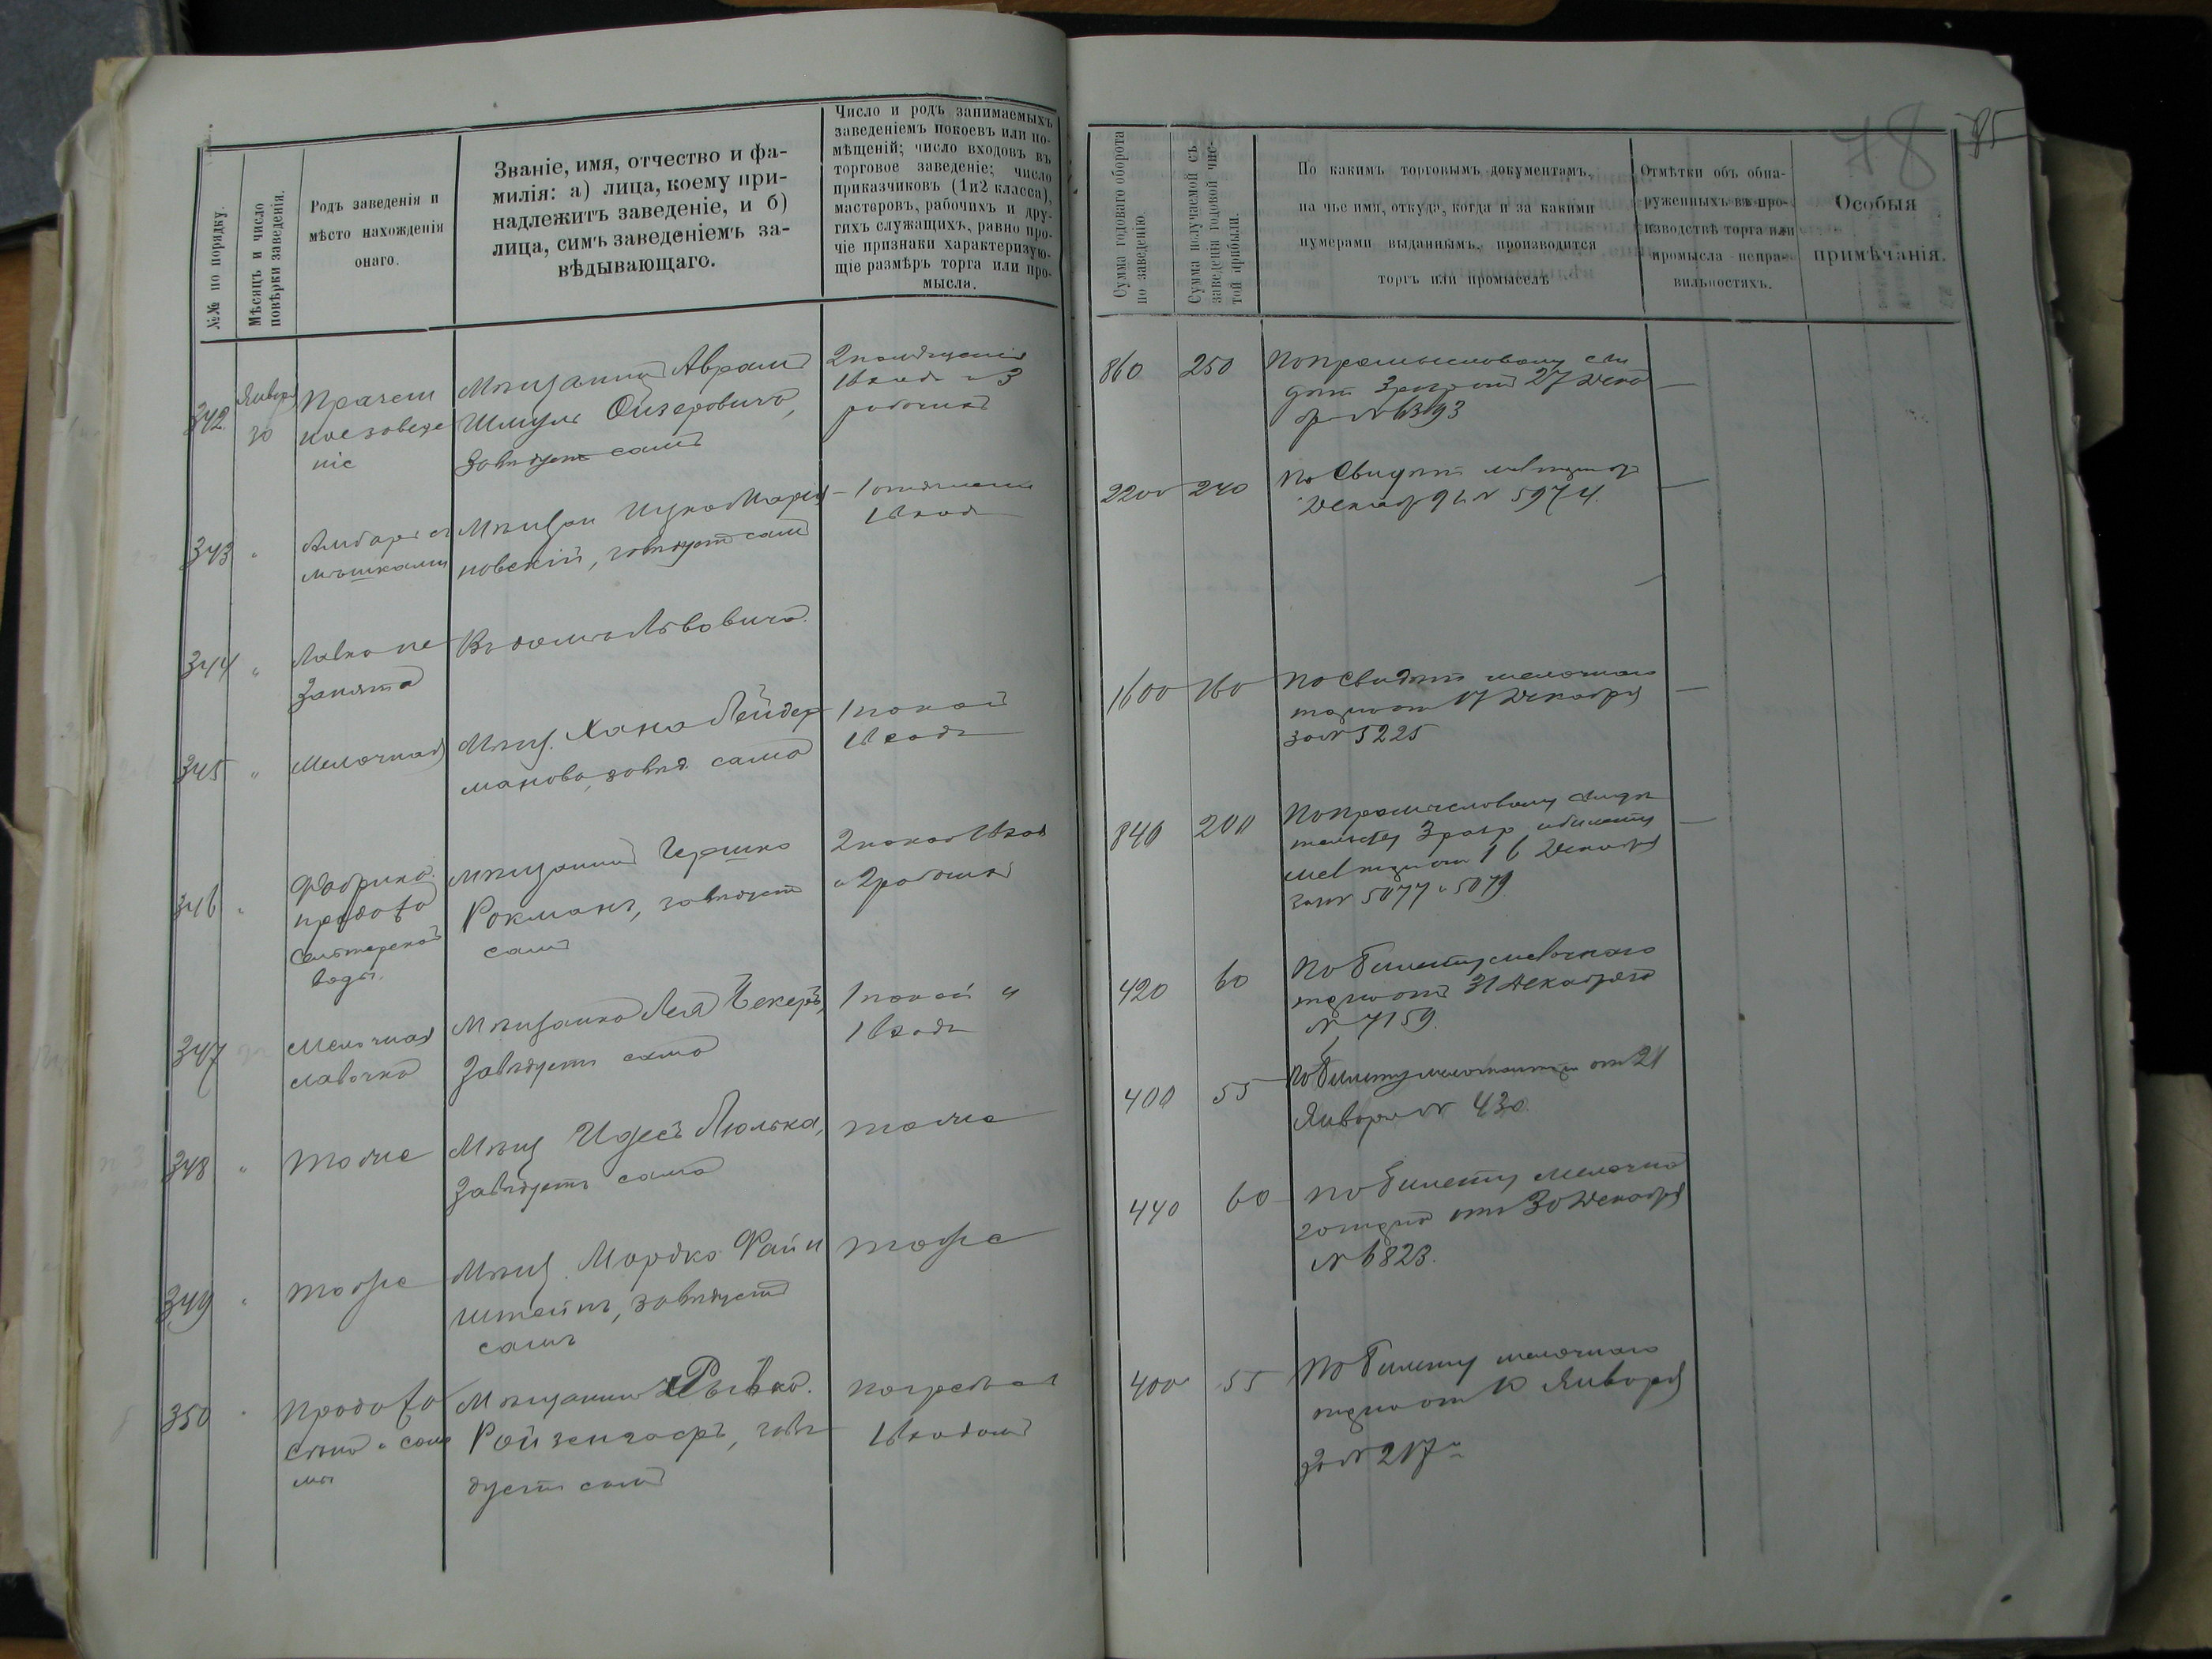 78
85
№№ по порядку.
Мѣсяцъ и число
повѣрки заведенія.
Родъ заведенія и
мѣсто нахожденія
онаго.
Званіе, имя, отчество и фа-
милія: а) лица, коему при-
надлежитъ заведеніе, и б)
лица, симъ заведеніемъ за-
вѣдывающаго.
Число и родъ занимаемыхъ
заведеніемъ покоевъ или по-
мѣщеній; число входовъ въ
торговое заведеніе; число
приказчиковъ (1 и 2 класса),
мастеровъ, рабочихъ и дру-
гихъ служащихъ, равно про-
чіе признаки характеризую-
щіе размѣръ торга или про-
мысла.
Сумма годоваго оборота
по заведенію.
Сумма получаемой съ
заведенія годовой чис-
той прибыли.
По какимъ торговымъ документамъ,
на чье имя, откуда, когда и за какими
нумерами выданнымъ, производится
торгъ или промыселъ
Отмѣтки объ обна-
руженныхъ въ про-
изводствѣ торга или
промысла непра-
вильностяхъ.
Особыя
примѣчанія.
342
Января
30
Прачеш
ное заведе
ніе
Мѣщанинъ Аврамъ
Шмуль Ойзеровичъ,
Завѣдуетъ самъ
2 помѣщенія
1 входъ и 3
рабочихъ
860
250
По промысловому
27
№ 6393
343
"
Амбаръ съ
мѣшками
Мѣщан Ицко Марья
новскій, завѣдуетъ самъ
1 отдѣленіе
1 входъ
2200
240
По Свидѣт
Декабр № 5974.
344
"
Лавка не
Занята
Въ домѣ Львовича.
345
"
Мелочная
Мѣщ. Хана Лейдер
манова, завѣд. сама
1 покой
1 входъ
1600
160
По свидѣт мелочнаго
торга от 17 Декабря
за № 5225
346
"
Фабрика
продажа
Сельтерской
воды.
Мѣщанинъ Гершко
Рокманъ, завѣдуетъ
самъ
2 покоя 1 входъ
и 2 рабочихъ
840
200
По промысловому свидѣ
тельству 3 разр и билету
мел торг от 16 Декабря
за № 5077 и 5079
347
Мелочная
лавочка
Мѣщанка Лея Бекеръ,
Завѣдуетъ сама
1 покой и
1 входъ
420
60
По билету мелочнаго
торга отъ 31 Декабря
№ 7159.
348
"
Тоже
Мѣщ Идесъ Люлька,
Завѣдуетъ сама
тоже
400
55
По билету мелочнаго торга от 21
Января № 430.
349
"
Тоже
Мѣщ. Мордко Файн
штейнъ, завѣдуетъ
самъ
тоже
440
60
По билету мелочна
го торга отъ 30 Декабря
№ 6823.
350
"
Продажа
сѣна и соло
мы
Мѣщанинъ Рывко.
Ройзенгафъ, завѣ
дуетъ самъ
погребъ съ
1 входомъ
400
55
По билету мелочнаго
торга от 10 Января
за № 217